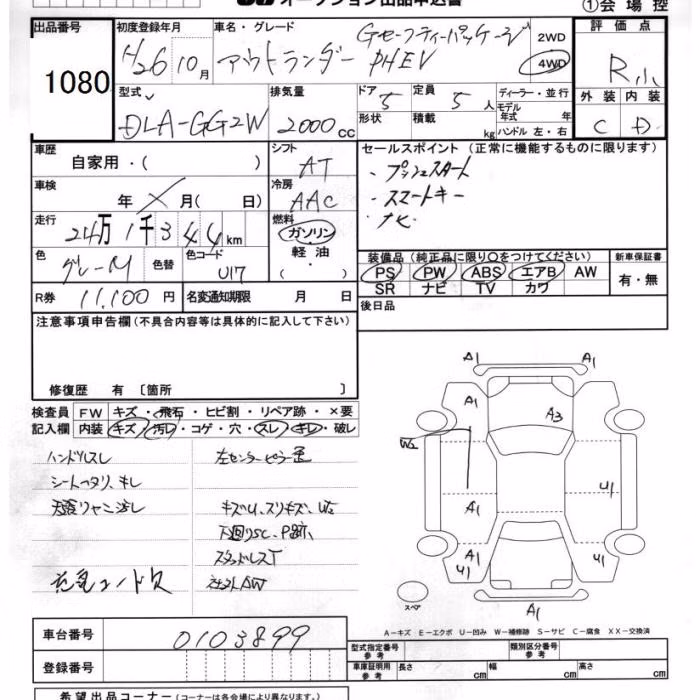 オークション出品申込書
①会場控
出品番号
1080
初度登録年月
H26 10月
車名・グレード
アウトランダー PHEV
Gセーフティーパッケージ
2WD
4WD
評価点
R小
型式
DLA-GG2W
排気量
2000cc
ドア 5
定員 5人
形状
積載 kg
ディーラー・並行
モデル年式 年
ハンドル 左・右
外装 内装
C D
車歴
自家用・( )
シフト
AT
セールスポイント (正常に機能するものに限ります)
・プッシュスタート
・スマートキー
・ナビ
車検
年 月( 日)
冷房
AAC
走行
24万1千344km
燃料
ガソリン
軽油
・( )
色
グレーM
色替
色コード
U17
装備品(純正品に限り〇をつけてください)
PS PW ABS エアB AW
SR ナビ TV カワ
新車保証書
有・無
R券 11,100円
名変通知期限 月 日
後日品
注意事項申告欄(不具合内容等は具体的に記入して下さい)
修復歴 有 [箇所 ]
検査員記入欄
FW キズ・飛石・ヒビ割・リペア跡・×要
内装 キズ・汚レ・コゲ・穴・スレ・キレ・破レ
ハンドルスレ
左センターピラー歪
シートヘタリ、キレ
キズU、スリキズ、W2
下廻りSC、P跡
スタッドレスT
充電コード欠
社外AW
A1 A1
A1
A3
W2
A1
U1
A1
U1
A1
U1
A1
スペア
A-キズ E-エクボ U-凹み W-補修跡 S-サビ C-腐食 XX-交換済
車台番号
0103899
登録番号
型式指定番号 参考
類別区分番号 参考
車庫証明用 参考
長さ cm
幅 cm
高さ cm
希望出品コーナー(コーナーは各会場により異なります。)